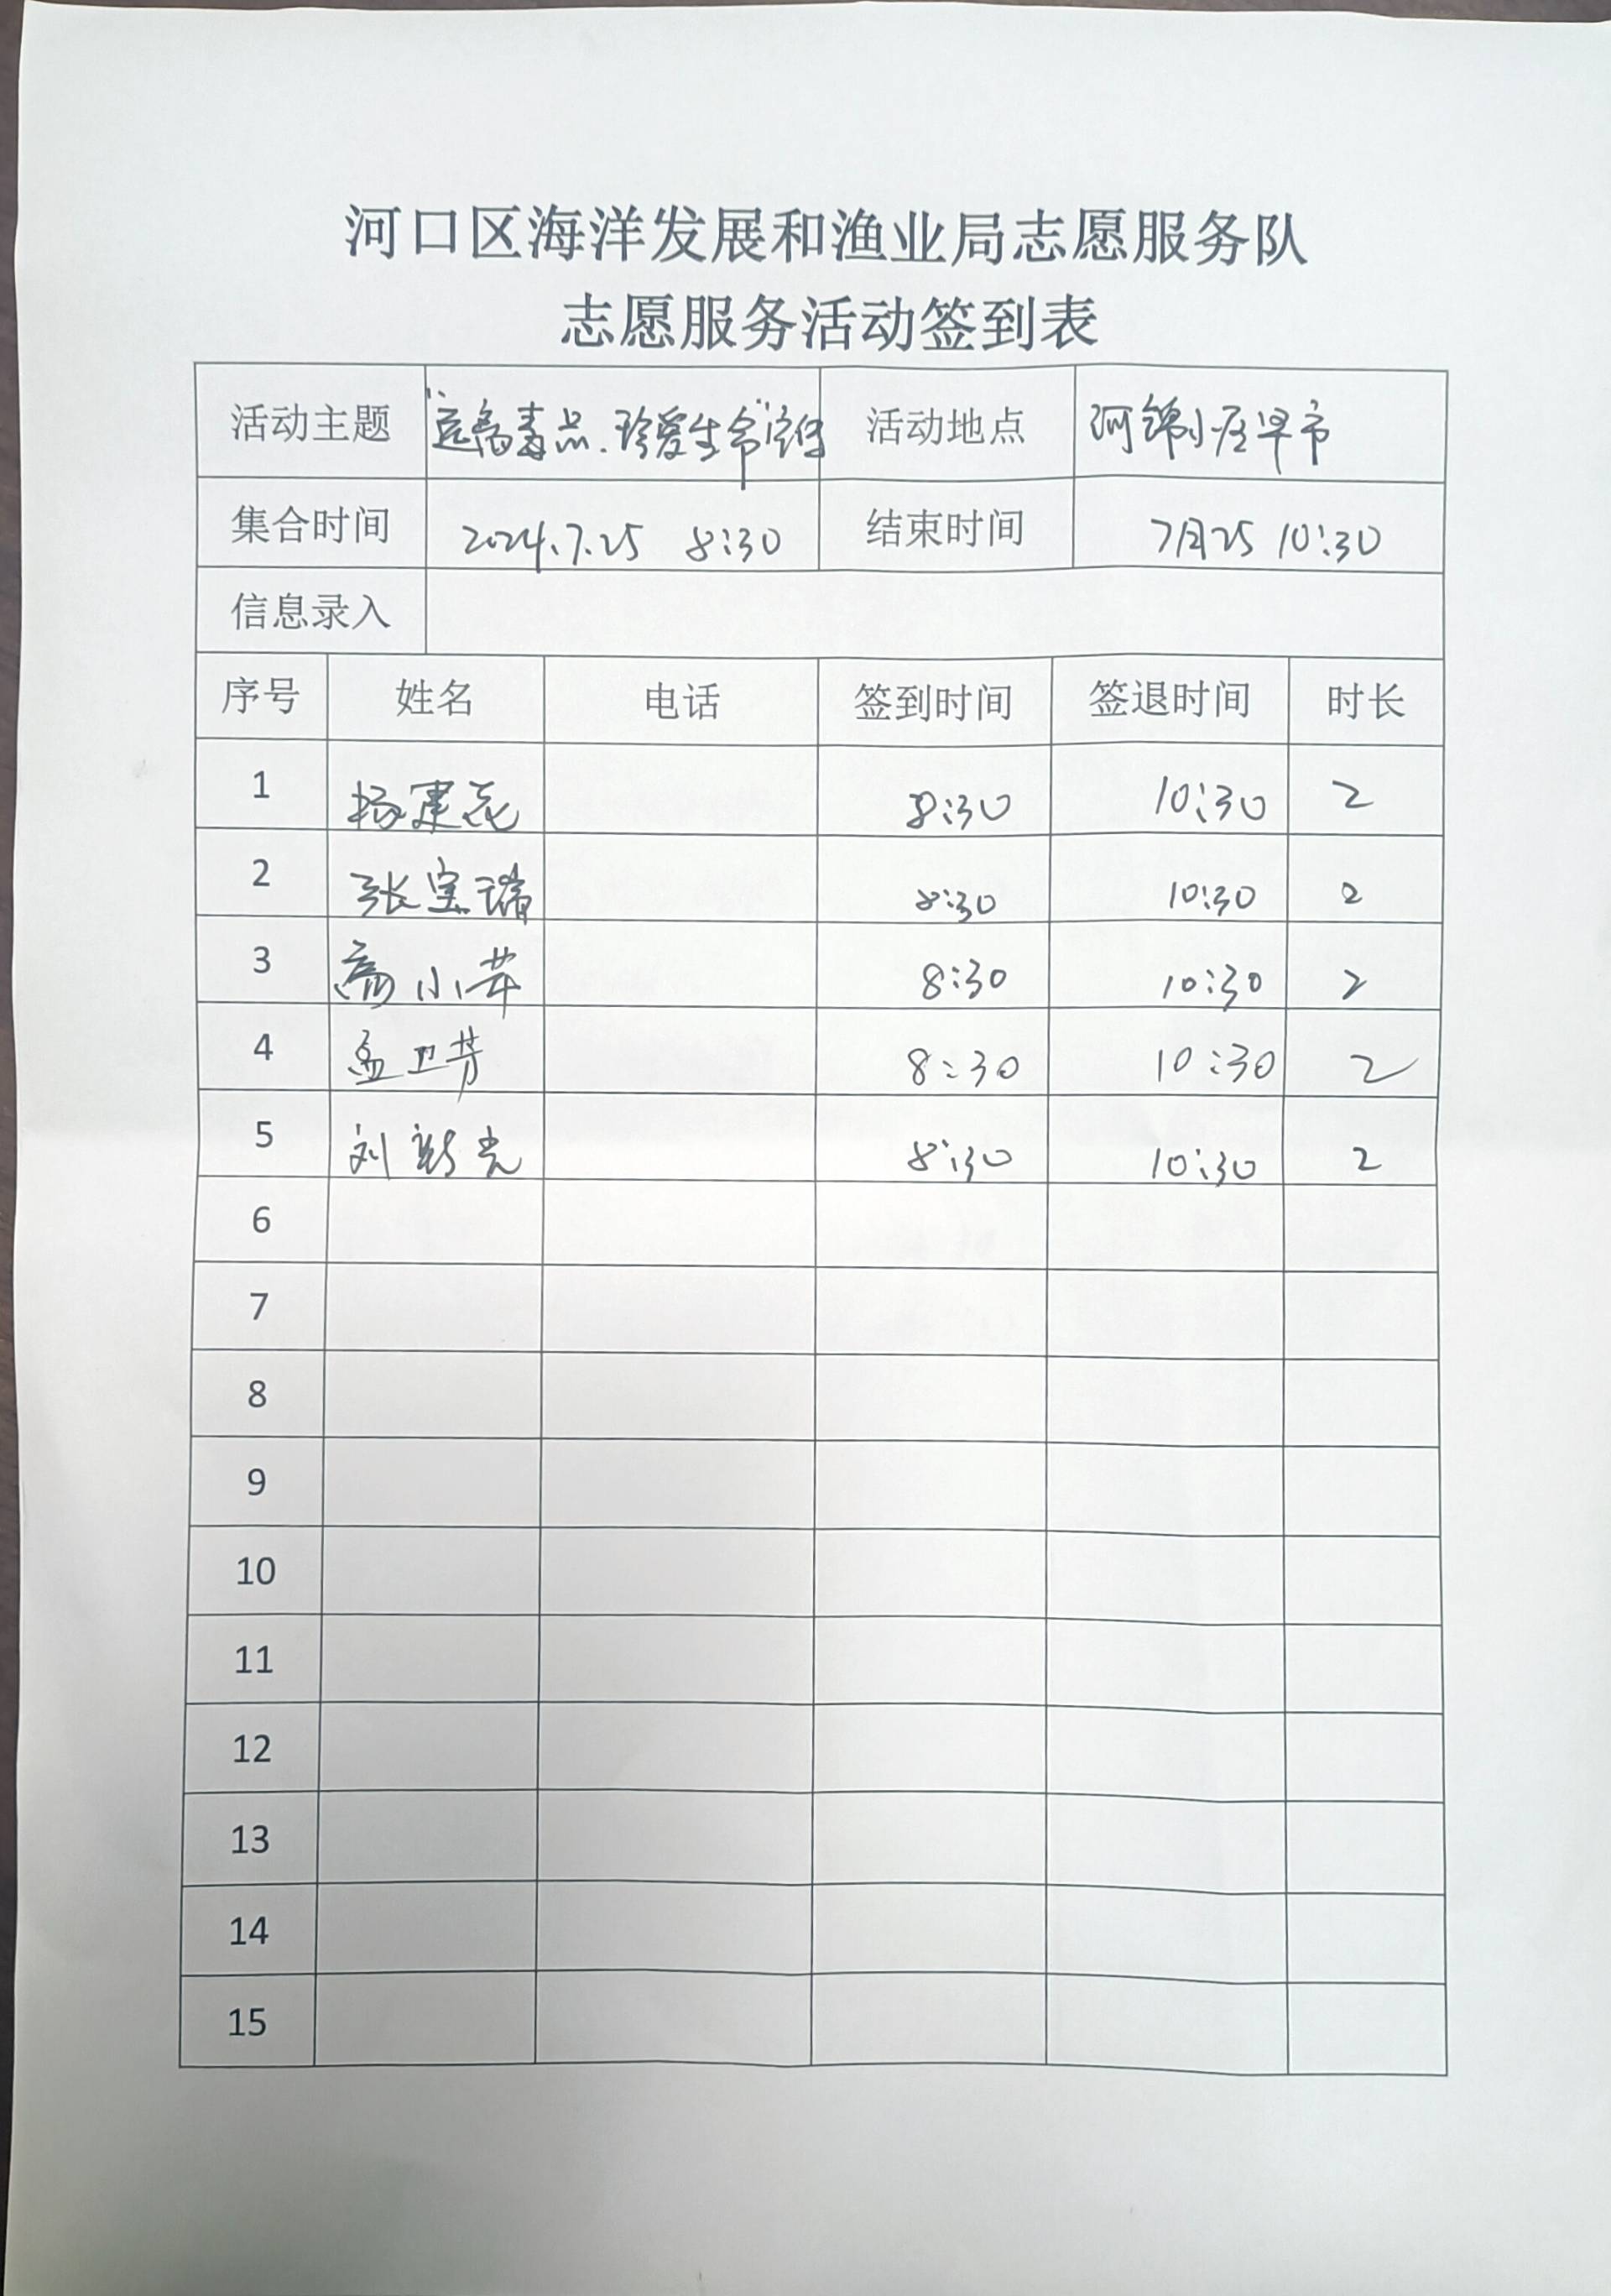 河口区海洋发展和渔业局志愿服务队
志愿服务活动签到表
活动主题 "远离毒品.珍爱生命"宣传 活动地点 河锦小区早市
集合时间 2024.7.25 8:30 结束时间 7月25 10:30
信息录入
序号 姓名 电话 签到时间 签退时间 时长
1 杨建花 8:30 10:30 2
2 张宝瑞 8:30 10:30 2
3 高小芹 8:30 10:30 2
4 孟卫芳 8:30 10:30 2
5 刘新光 8:30 10:30 2
6
7
8
9
10
11
12
13
14
15